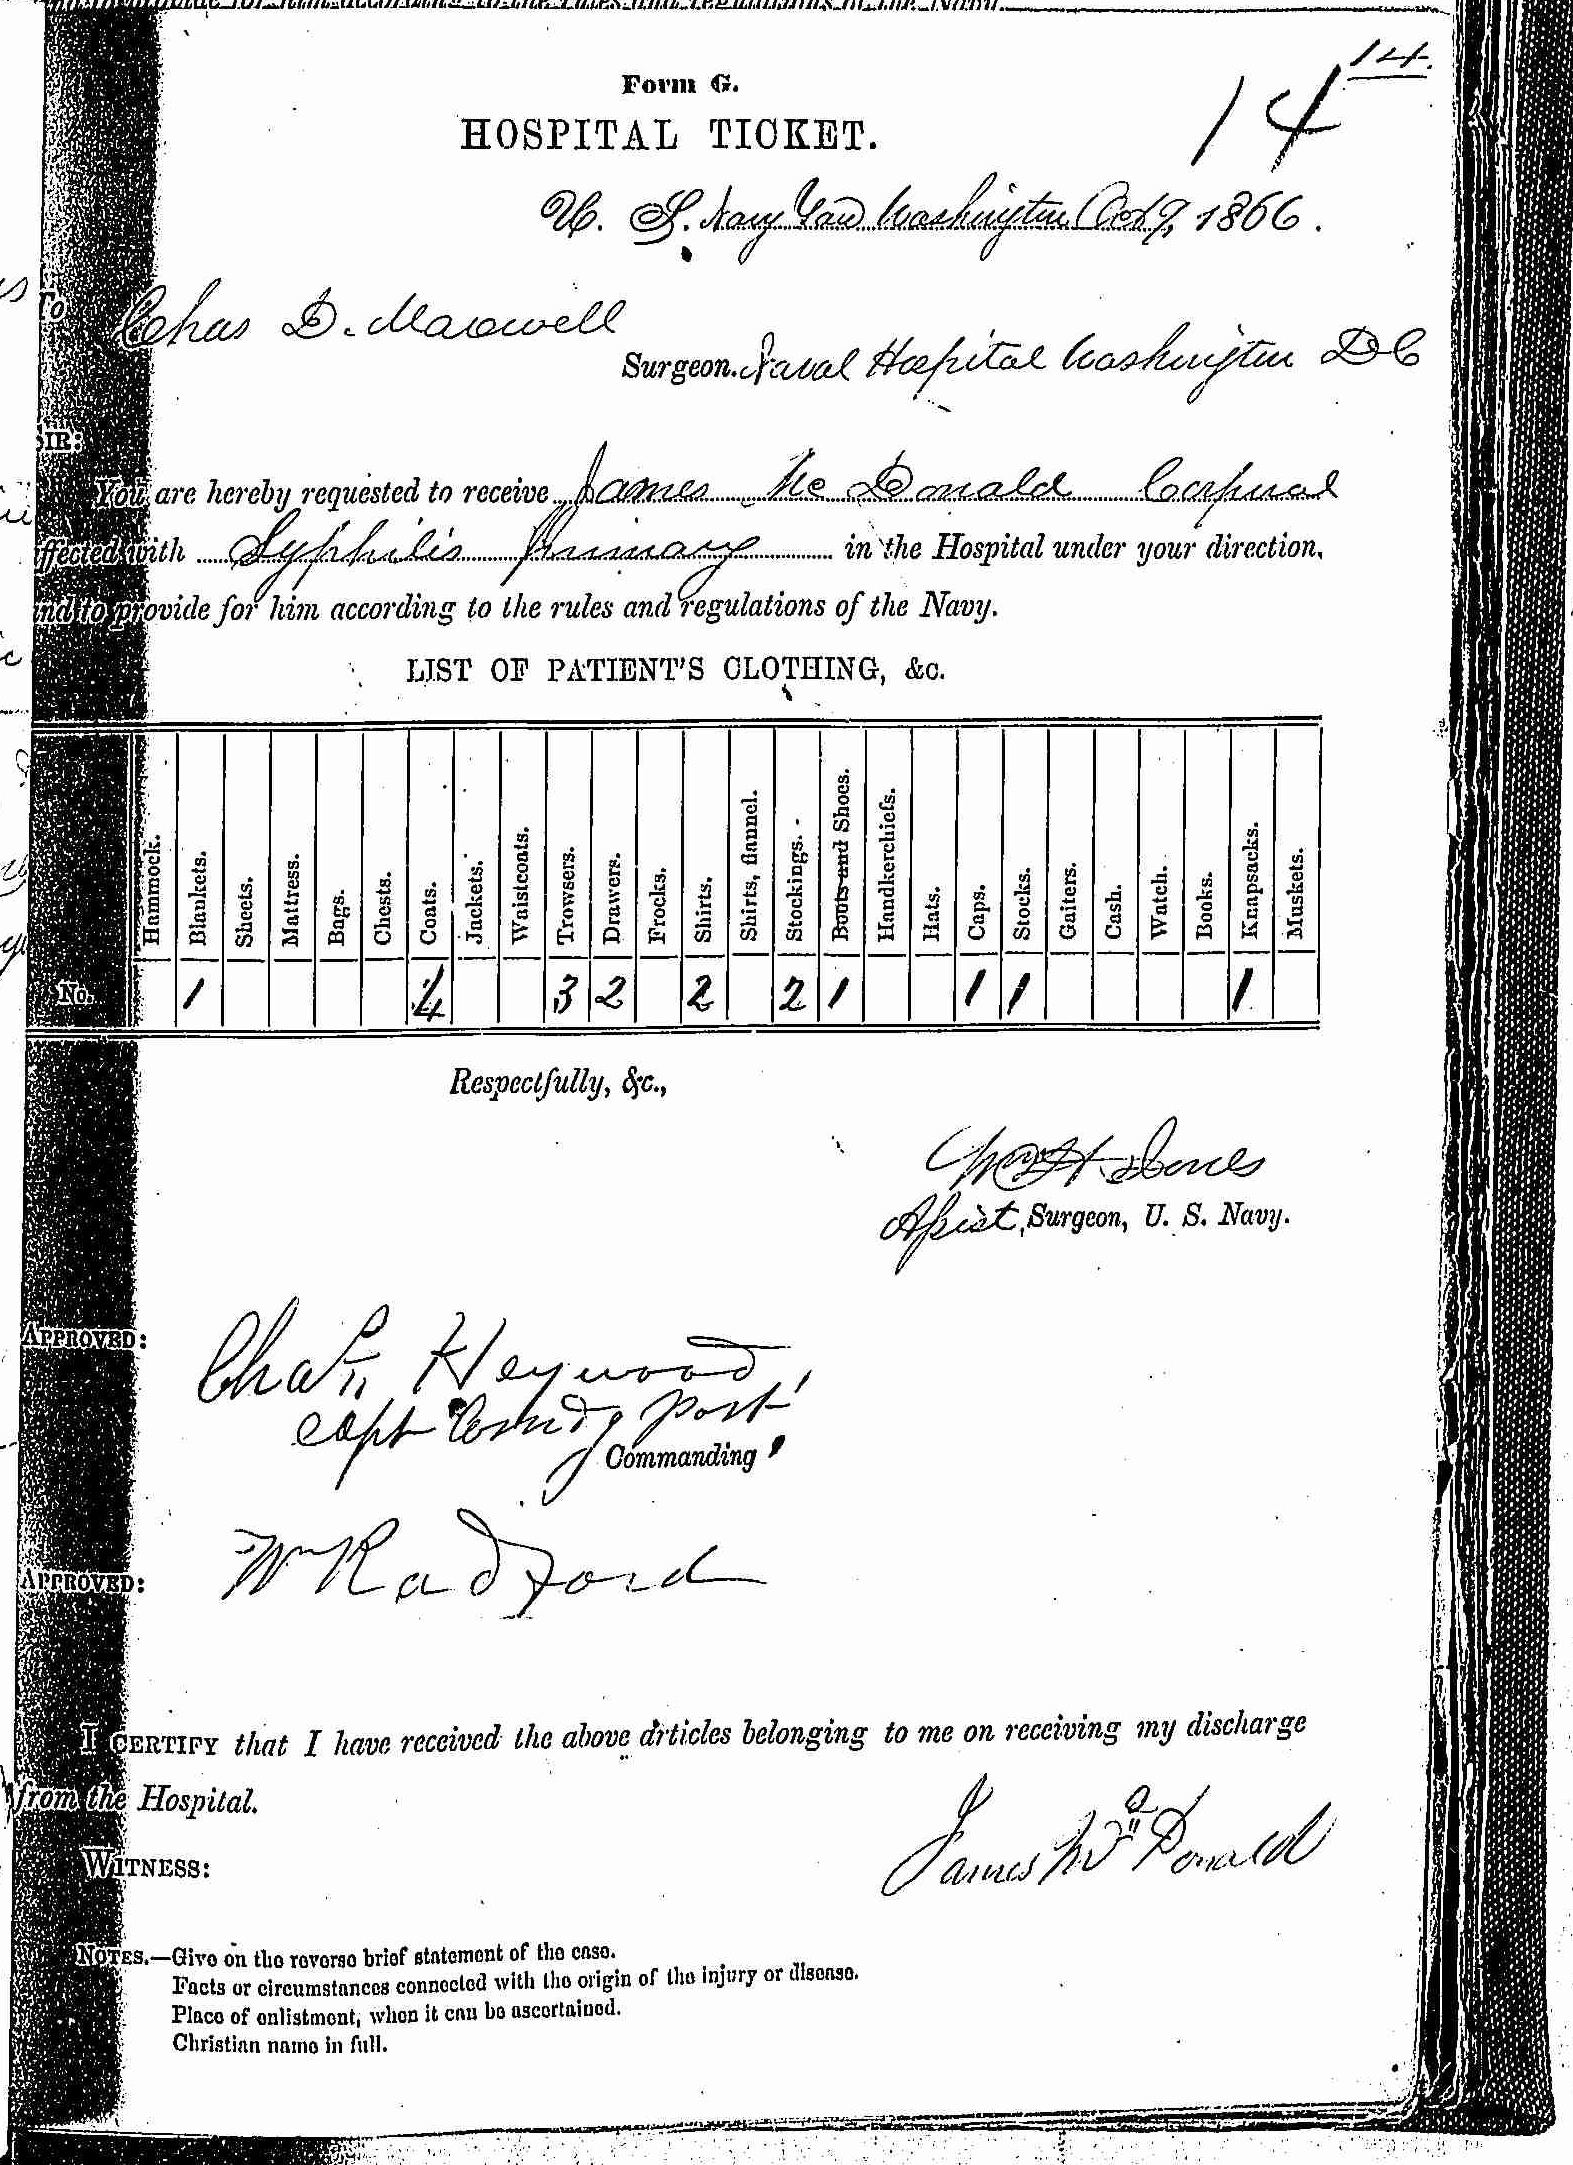 and to provide for him according to the rules and regulations of the Navy.
14.
14
Form G.
HOSPITAL TICKET.
U. S. Navy Yard Washington Oct 9, 1866.
To Chas D. Maxwell
Surgeon. Naval Hospital Washington DC
SIR:
You are hereby requested to receive James McDonald Corporal
affected with Syphilis Primary in the Hospital under your direction,
and to provide for him according to the rules and regulations of the Navy.
LIST OF PATIENT'S CLOTHING, &c.
Hammock. Blankets. Sheets. Mattress. Bags. Chests. Coats. Jackets. Waistcoats. Trowsers. Drawers. Frocks. Shirts. Shirts, flannel. Stockings. Boots and Shoes. Handkerchiefs. Hats. Caps. Stocks. Gaiters. Cash. Watch. Books. Knapsacks. Muskets.
No. 1 4 3 2 2 2 1 1 1 1
Respectfully, &c.,
Wm H. Jones
Assist, Surgeon, U. S. Navy.
APPROVED:
Chas Heywood
Capt Comdg Post
Commanding
APPROVED:
Wm Radford
I CERTIFY that I have received the above articles belonging to me on receiving my discharge
from the Hospital.
James McDonald
WITNESS:
NOTES.—Give on the reverse brief statement of the case.
Facts or circumstances connected with the origin of the injury or disease.
Place of enlistment, when it can be ascertained.
Christian name in full.